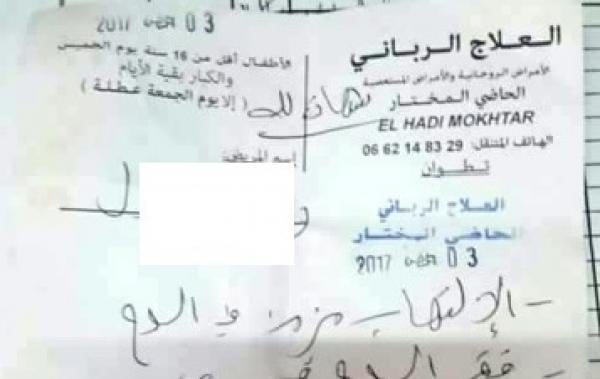 العلاج الرباني
الأمراض الروحانية والأمراض المستعصية
الحاضي المختار
EL HADI MOKHTAR
الهاتف المتنقل: 06 62 14 83 29
تطوان
2017 03
الأطفال أقل من 16 سنة يوم الخميس
والكبار بقية الأيام
(إلا يوم الجمعة عطلة)
إسم المريض:
العلاج الرباني
الحاضي المختار
2017 03
- الإلتهاب مزمن في الدم